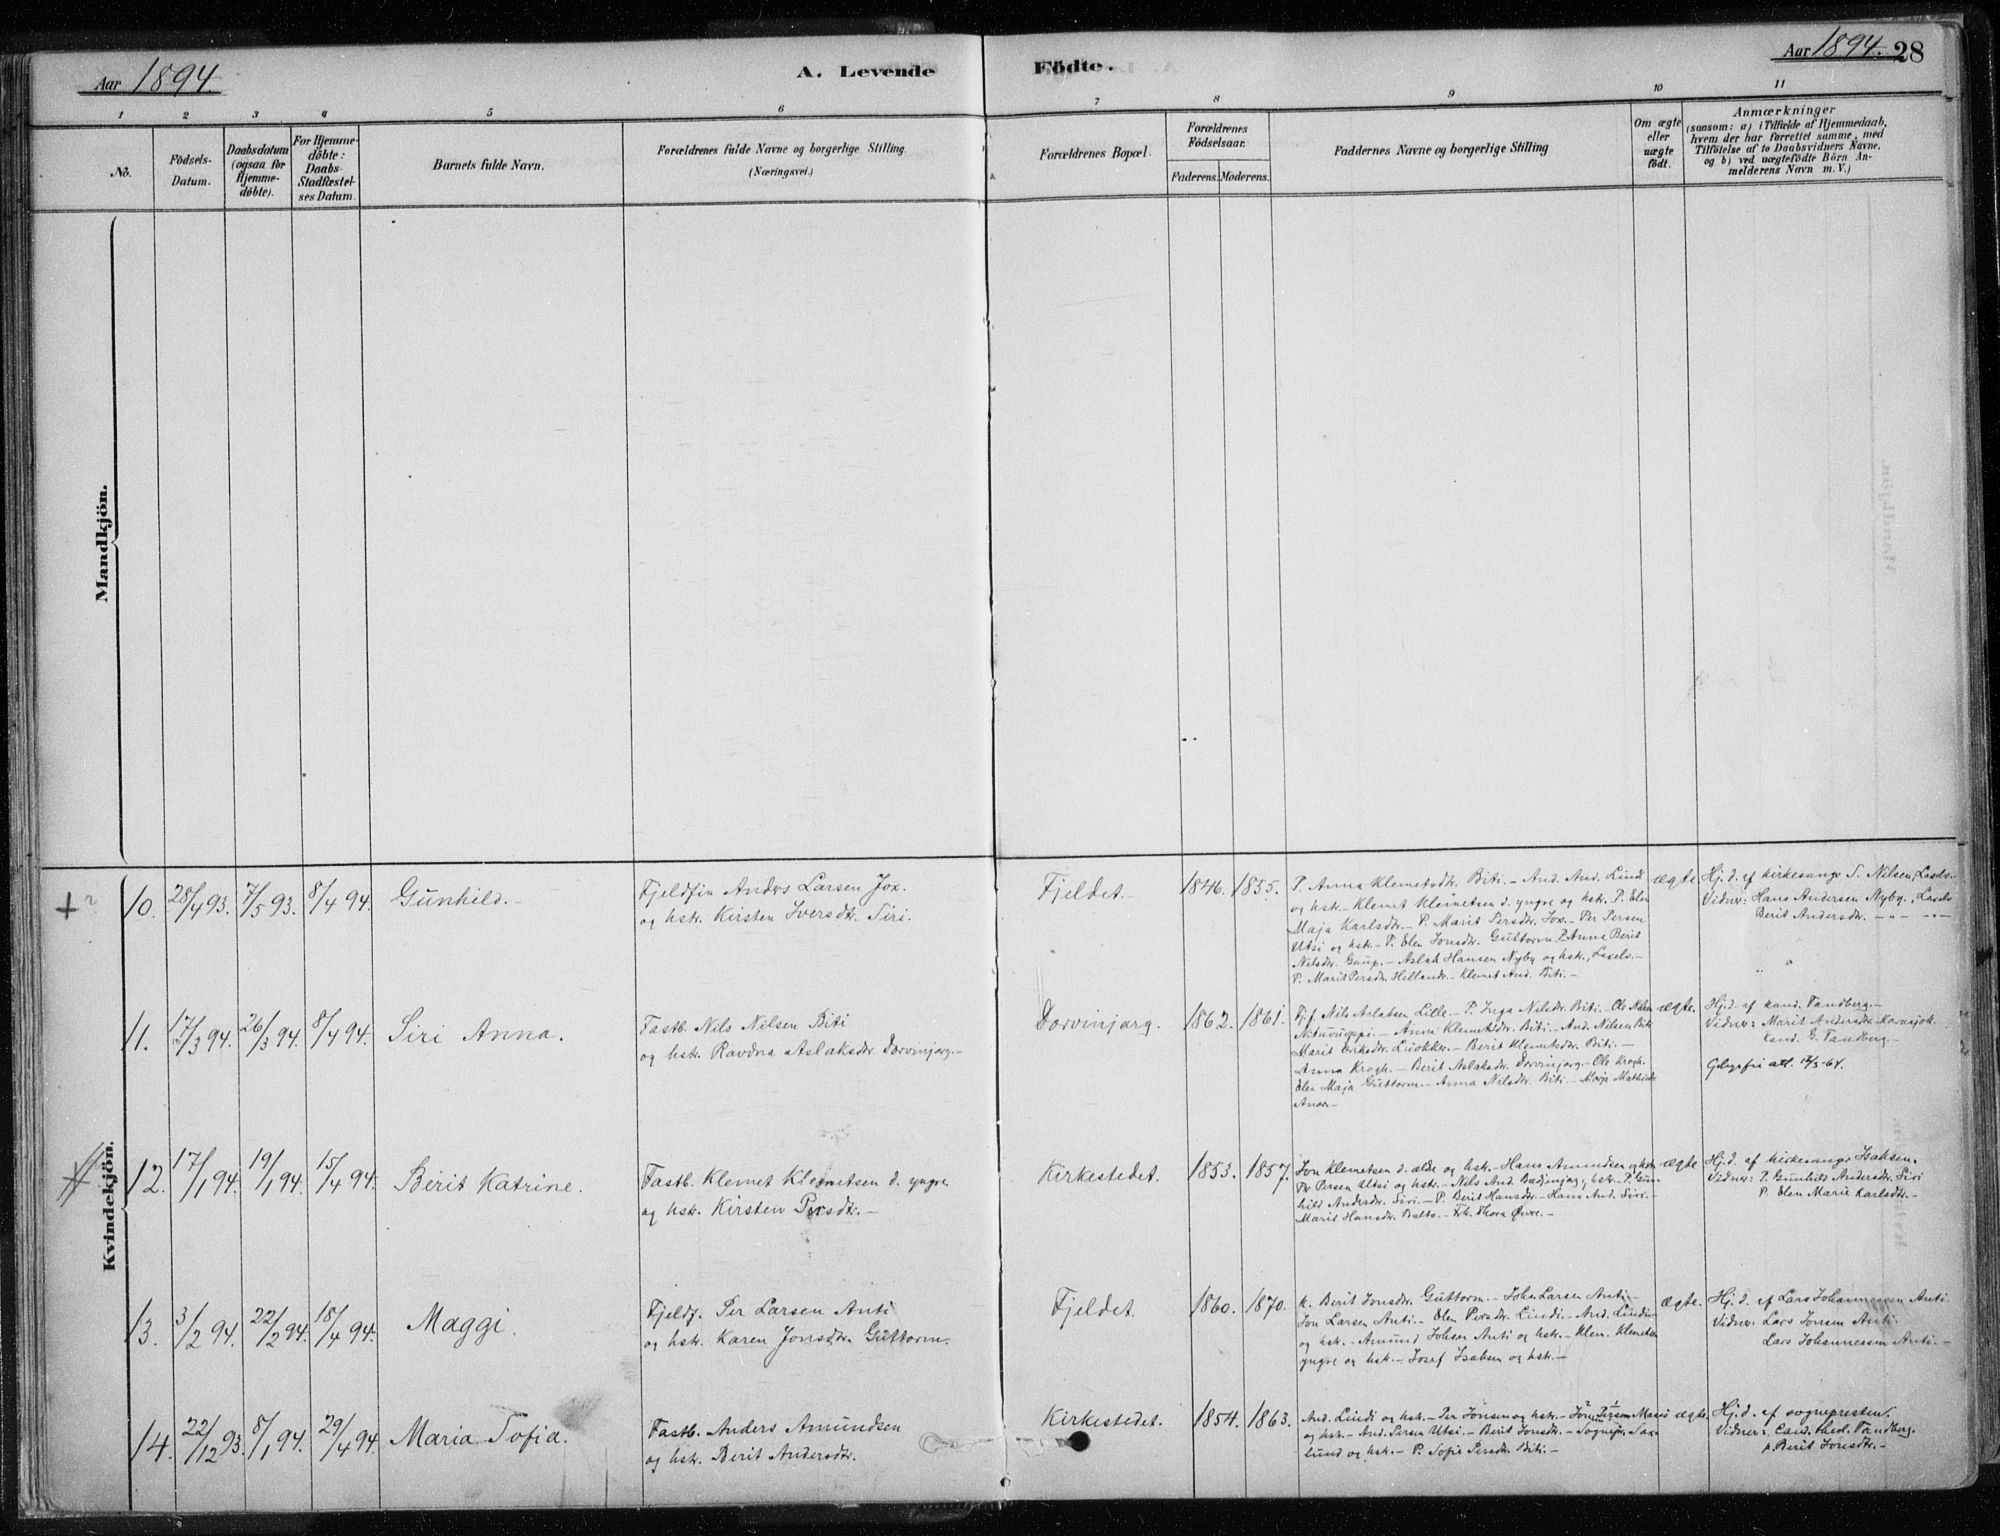 Aar 1894.
A. Levende
Födte.
Aar 1894. 28
1 2 3 4 5 6 7 8 9 10 11
No.
Födsels-
Datum.
Daabsdatum
(ogsaa for
Hjemme-
döbte).
For Hjemme-
döbte:
Daabs-
Stadfæstel-
ses Datum.
Barnets fulde Navn.
Forældrenes fulde Navne og borgerlige Stilling.
(Næringsvei.)
Forældrenes Bopæl.
Forældrenes
Födselsaar.
Faderens. Moderens.
Faddernes Navne og borgerlige Stilling
Om ægte
eller
uægte
födt.
Anmærkninger
(saasom: a) i Tilfælde af Hjemmedaab,
hvem der har forrettet samme, med
Tilföielse af to Daabsvidners Navne,
og b) ved uægtefödte Börn An-
melderens Navn m.V.)
Mandkjön.
Kvindekjön.
10. 28/4 93. 7/5 93. 8/4 94. Gunhild.
Fjeldfin Anders Larsen Jox.
og hstr. Kirsten Iversdtr. Siri.
Fjeldet. 1846. 1855.
P. Anna Klemetsdtr. Biti. – And. And. Lindi
og hstr. – Klemet Klemetsen d. yngre og hstr. P. Elen
Maja Karlsdtr. – P. Marit Persdtr. Jox. – Per Persen
Utsi og hstr. – P. Elen Jonsdtr. Guttorm. P. Anna Berit
Nilsdtr. Gaup. – Aslak Hansen Nyby og hstr., Laxels. –
P. Marit Persdtr. Hellander. – Klemet And. Biti. –
ægte.
Hj. d. af kirkesanger S. Nilsen, Laxels.
Vidner: Hans Andersen Nyby, Laxels
Berit Andersdtr. – " – " –
11. 17/3 94. 26/3 94. 8/4 94. Siri Anna.
Fastb. Nils Nilsen Biti
og hstr. Ravdna Aslaksdtr. Dorvinjarg. –
Dorvinjarg. 1862. 1861.
Fj. f. Nils Aslaksen Lille. – P. Inga Nilsdtr. Biti. – Ole Nilsen
– Anne Klemetsdtr. Biti. – And. Nilsen Biti
Marit Eriksdtr. Luokker. – Berit Klemetsdtr. Biti. –
Anna Krogh. – Berit Aslaksdtr. Dorvinjarg. – Ole Krogh.
Elen Maja Guttorm. – Anna Nilsdtr. Biti. – Marja Mathisdtr.
ægte.
Hj. d. af kand. Tandberg. –
Vidner: Marit Andersdtr. Karasjok.
kand. G. Tandberg. –
Gebyrfri att. 12/3-64.
12. 17/1 94. 19/1 94. 15/4 94. Berit Katrine.
Fastb. Klemet Klemetsen d. yngre
og hstr. Kirsten Persdtr. –
Kirkestedet. 1853. 1857.
Jon Klemetsen d. ælde og hstr. – Hans Amundsen og hstr.
Per Persen Utsi og hstr. – Nils And. Badjenjarg, hstr. – P. Gun-
hild Andersdtr. Siri. – P. Berit Hansdtr. – Hans And. Siri. –
Marit Hansdtr. Balto. – Frk. Thora Øvre. –
ægte
Hj. d. af kirkesanger Isaksen.
Vidner: P. Gunhild Andersdtr. Siri
P. Elen Marie Karlsdtr. –
13. 3/2 94. 22/2 94. 18/4 94. Maggi.
Fjeldf. Per Larsen Anti
og hstr. Karen Jonsdtr. Guttorm.
Fjeldet 1860. 1870.
k. Berit Jonsdtr. Guttorm. – Johs. Larsen Anti. –
Jon Larsen Anti. – Elen Persdtr. Lindi. – And. Lindi
og hstr. – Amund Johsen Anti og hstr. – Klem. Klemetsen
yngre og hstr. – Josef Isaksen og hstr. –
ægte.
Hj. d. af Lars Johannessen Anti
Vidner: Lars Jonsen Anti.
Lars Johannessen Anti. –
14. 22/12 93. 8/1 94. 29/4 94. Maria Sofia.
Fastb. Anders Amundsen
og hstr. Berit Andersdtr.
Kirkestedet. 1854. 1863.
And. Lindi og hstr. – Per Jonsen og hstr. – Jon Persen Masi
og hstr. – And. Persen Utsi. – Berit Jonsdtr. – Sognepr. Sax-
lund og hstr. – P. Sofie Persdtr. Biti. –
ægte.
Hj. d. af sognepresten.
Vidner: Cand. theol. Tandberg.
p. Berit Jonsdtr. –